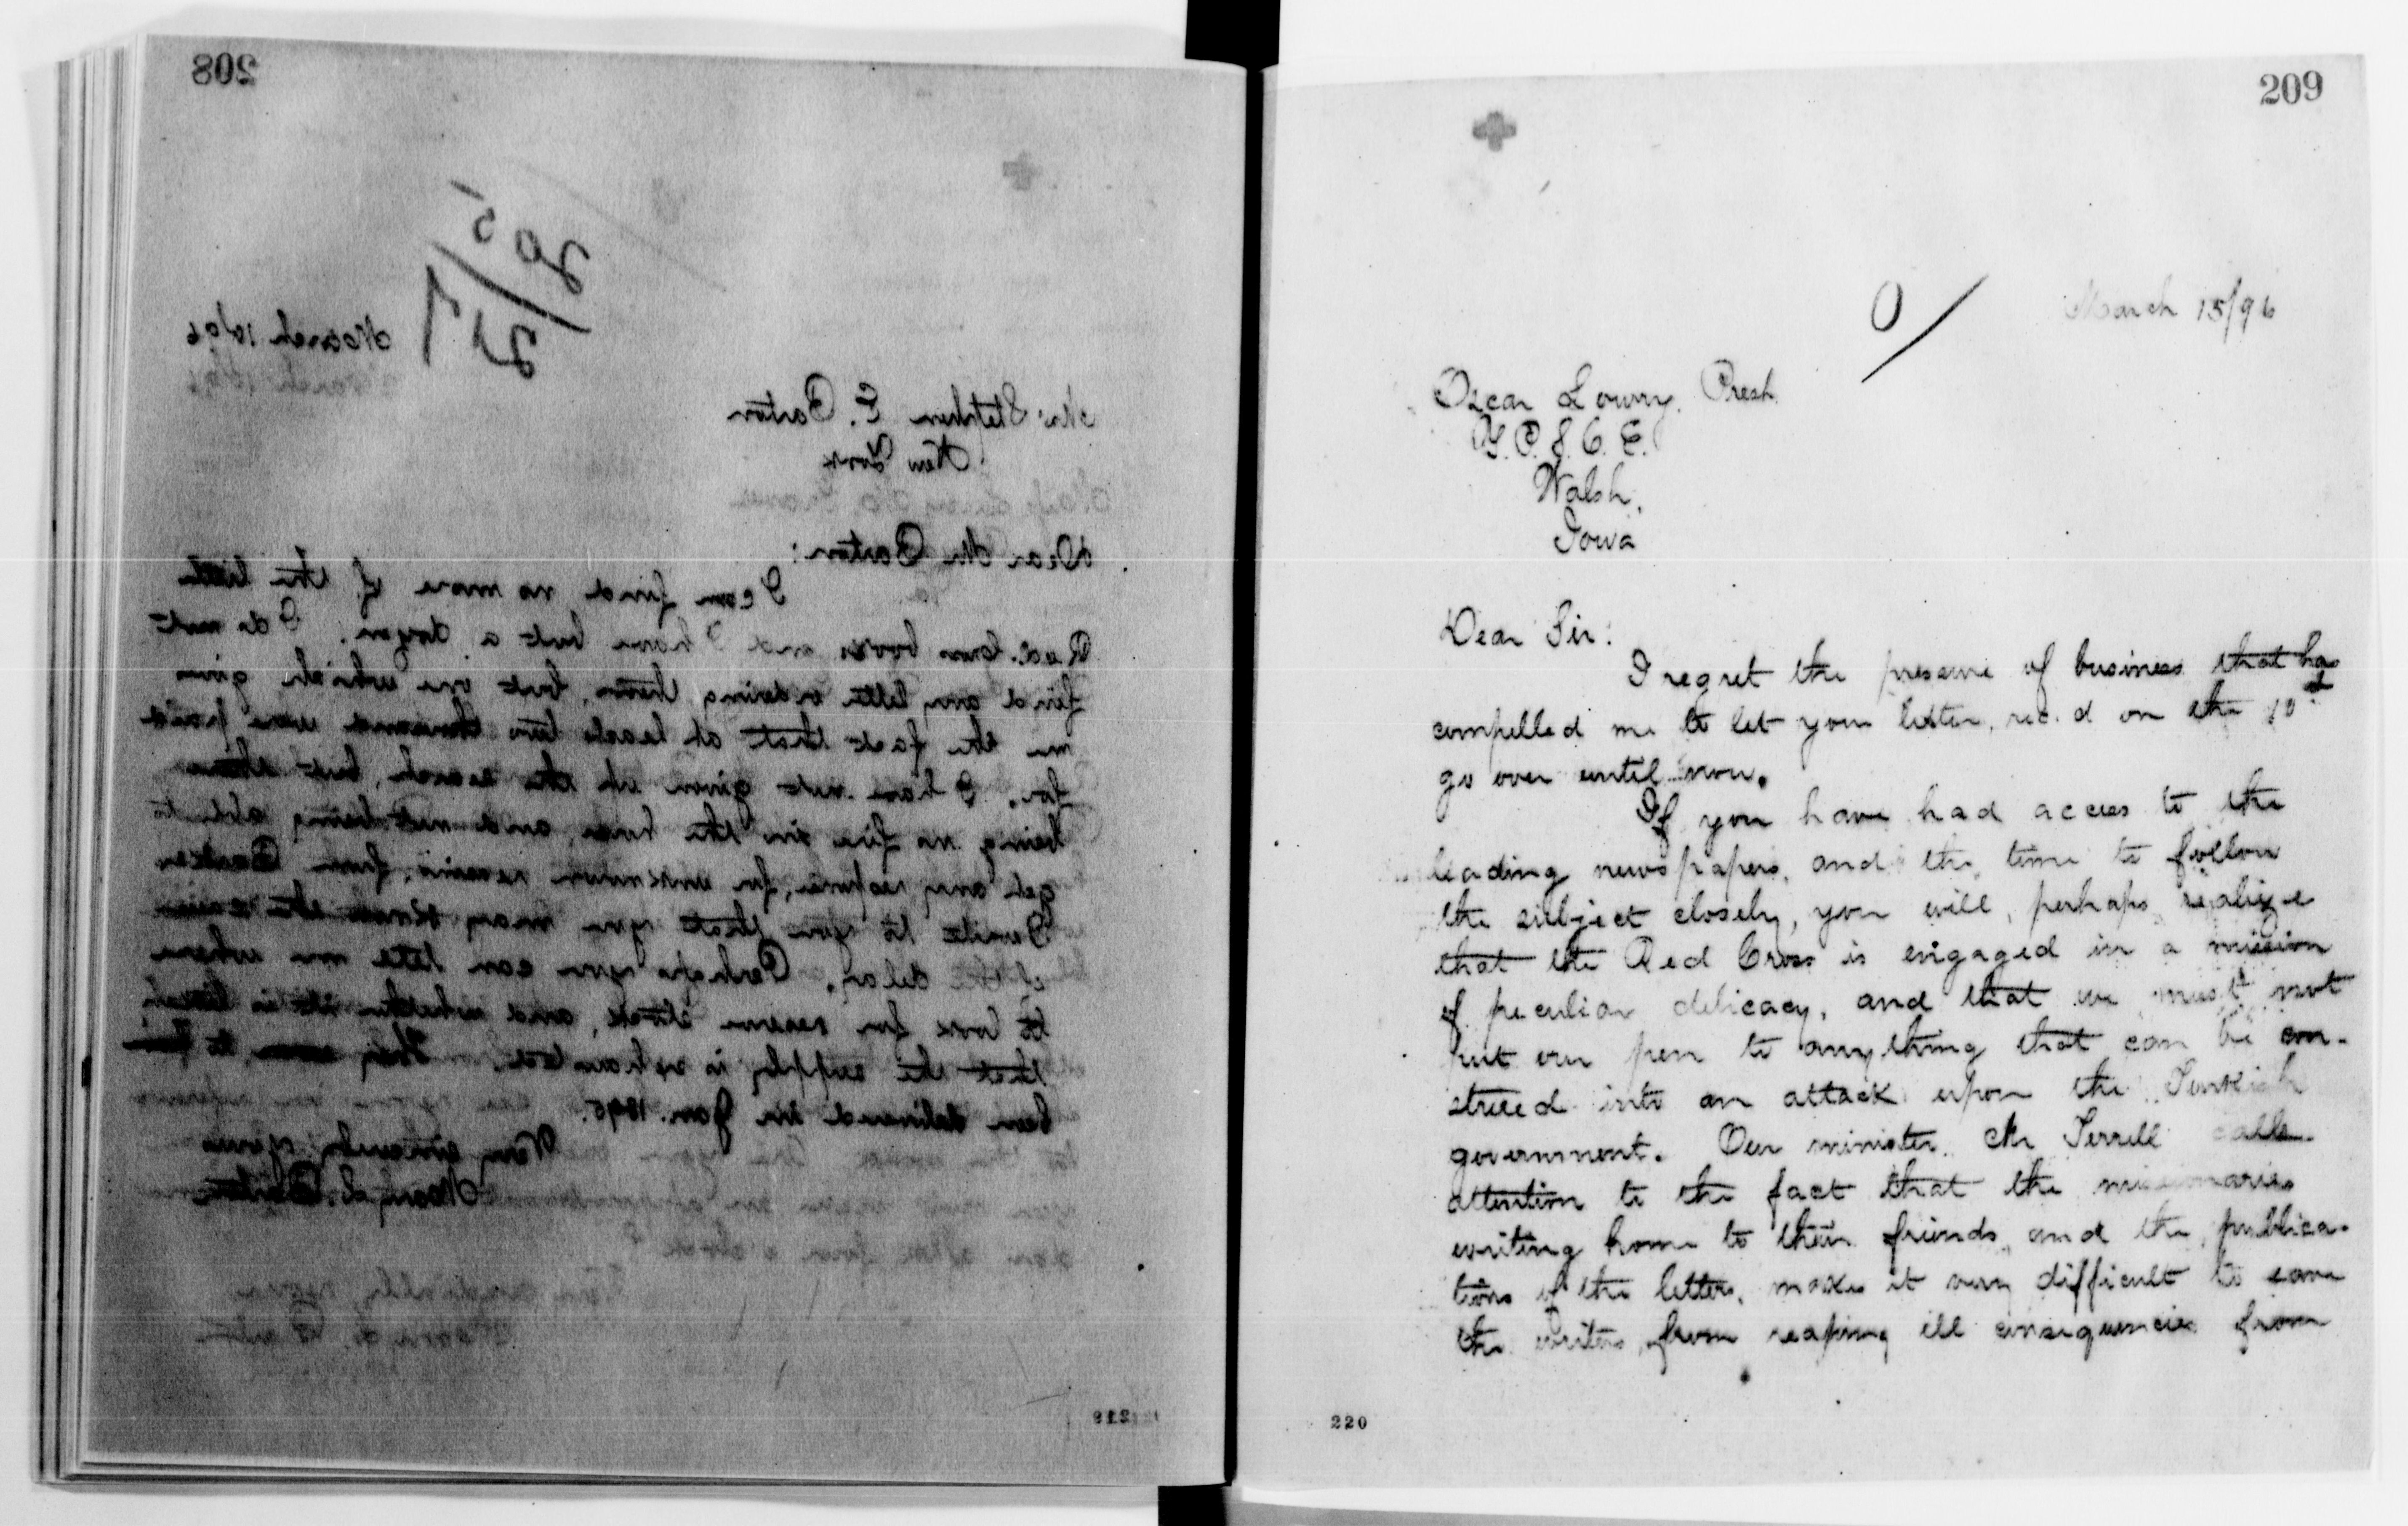 209
March 15/96
Oscar Lowry. Presh.
Y. P. S. C. E.
Walsh,
Iowa
Dear Sir:
I regret the pressure of business that has
compelled me to let your letter, rec.d on the 10
go over until now.
If you have had access to the
leading newspapers, and the time to follow
the subject closely, you will, perhaps realize
that the Red Cross is engaged in a mission
of peculiar delicacy, and that we must not
put our pen to anything that can be con-
strued into an attack upon the Turkish
government. Our minister Mr Terrell calls
attention to the fact that the missionaries
writing home to their friends, and the publica-
tions of the letters, makes it very difficult to save
the writers, from reaping ill consequencies from
220
208
205
217
March 10/96
Mr. Stephen E. Barton
New York
Dear Mr Barton:
I can find no more of the little
Red Cross books and I have but a dozen. I do not
find any letter ordering them, but one which gives
me the fact that at least two thousand were paid
for. I have not given up the search, but there
being no fire in the house, and not being able to
get any response, for unknown reasons, from
I write to you that you may know the reason
of the delay. Perhaps you can tell me where
to look for reserve stock, and whether it is
that the supply is exhausted. They to have
been delivered in Jan. 1895.
Very sincerely yours
219